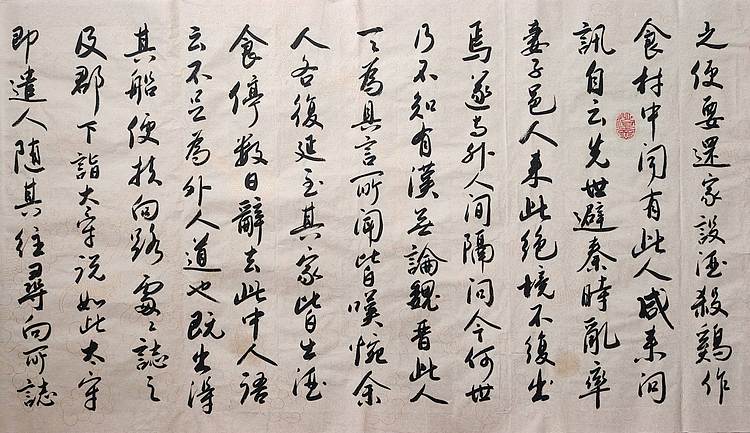 之便要還家設酒殺鷄作
食村中闻有此人咸来问
訊自云先世避秦時亂率
妻子邑人来此绝境不復出
焉遂与外人间隔问今何世
乃不知有漢无論魏晋此人
一一為具言所闻皆嘆惋余
人各復延至其家皆出酒
食停数日辭去此中人语
云不足為外人道也既出得
其船便扶向路處處誌之
及郡下詣太守说如此太守
即遣人随其往尋向所誌